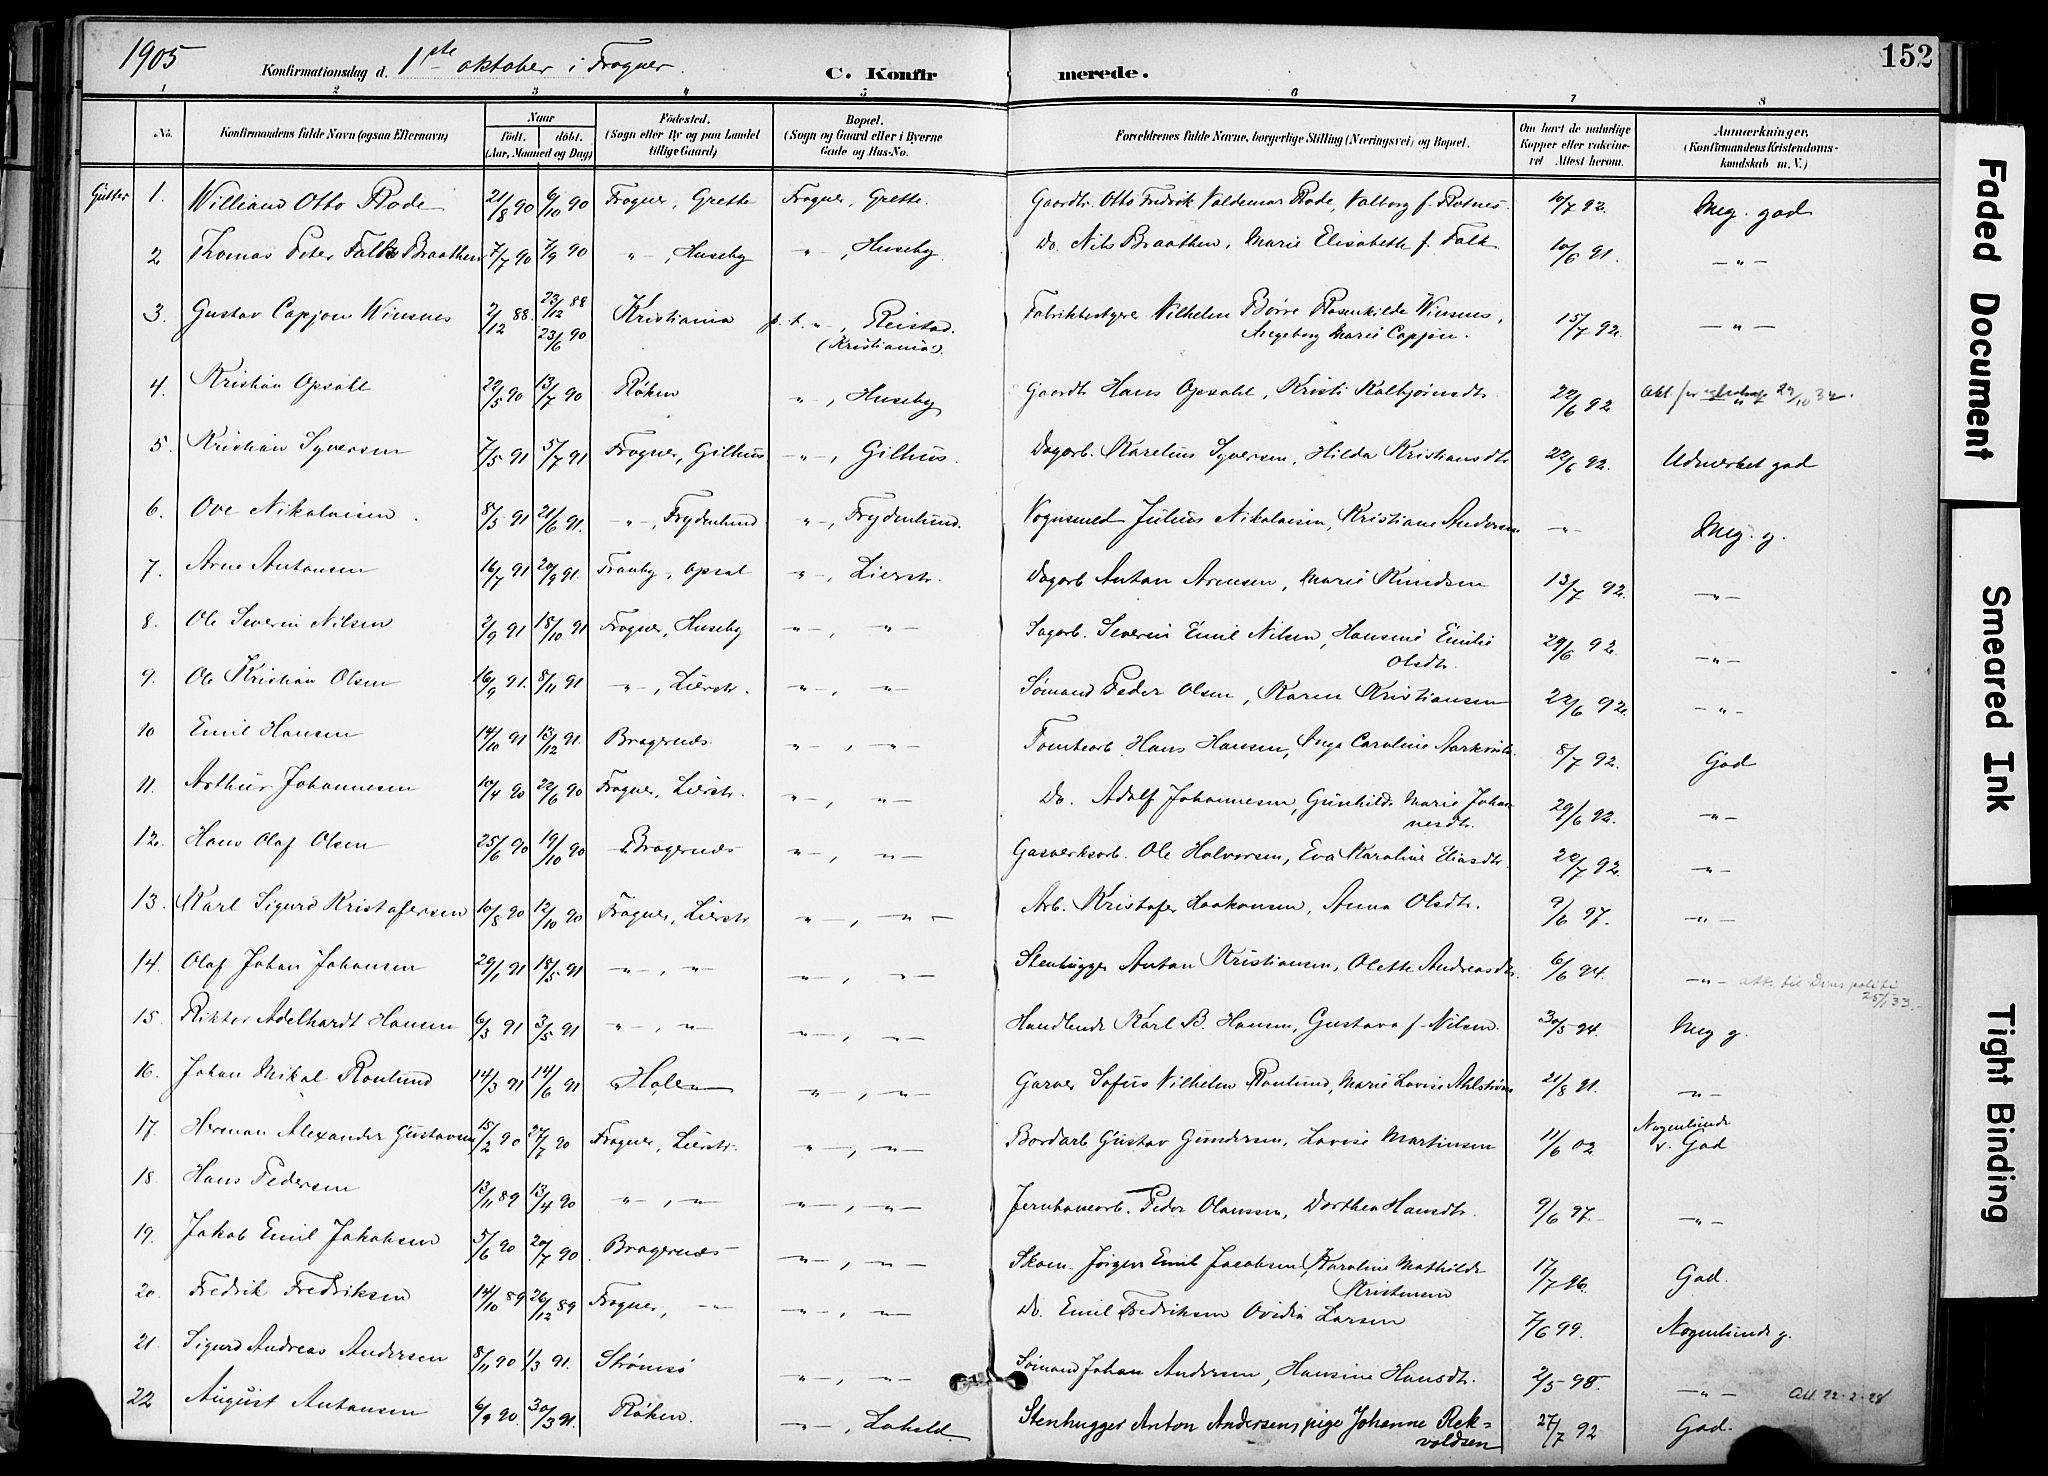 1905 Konfirmationsdag d. 1ste oktober i Frogner. C. Konfirmerede. 152
1 2 3 4 5 6 7 8
No. Konfirmandens fulde Navn (ogsaa Efternavn) Naar født. døbt. (Aar, Maaned og Dag) Fødested. (Sogn eller By og paa Landet tillige Gaard) Bopæl. (Sogn og Gaard eller i Byerne Gade og Hus-No. Forældrenes fulde Navne, borgerlige Stilling (Næringsvei) og Bopæl. Om havt de naturlige Kopper eller vaccineret Attest herom. Anmærkninger. (Konfirmandens Kristendomskundskab m. V.)
Gutter 1. Williand Otto Rode 21/8 90 6/10 90 Frogner, Grette Frogner, Grette. Gaardbr. Otto Fredrik Valdemar Rode, Valborg f. Rotnes. 10/7 92. Meg. god
2 Thomas Peter Falk Braathen 7/7 90 7/9 90 -"-, Huseby -"-, Huseby. Do. Nils Braathen, Marie Elisabeth f. Falk 10/6 91. -"-
3. Gustav Capjon Winsnes 2/12 88. 23/12 88 23/6 90 Kristiania p.t. -"-, Reistad. (Kristiania) Fabrikbestyrer Vilhelm Børre Rosenkilde Winsnes, Ingeborg Marie Capjon. 15/7 92. -"-
4. Kristian Opsahl 22/5 90 13/7 90 Røken -"-, Huseby Gaardbr. Hans Opsahl, Kristi Kolbjørnsdtr 22/6 92 -"- 29/10 32.
5. Kristian Syversen 7/5 91 5/7 91 Frogner, Gilhus -"-, Gilhus. Dagarb. Karelius Syversen, Hilda Kristiansdtr 22/6 92. Udmerket god
6. Ove Nikolaisen. 8/5 91 21/6 91. -"-, Frydenlund -"-, Frydenlund. Vognsmed Julius Nikolaisen, Kristiane Andersen -"- Meg. g.
7. Arne Antonsen 16/7 91 20/9 91. Tranby, Opsal -"-, Lierstr. Dagarb Anton Arnesen, Marie Knudsen 13/7 92. -"-
8. Ole Severin Nilsen 2/9 91 18/10 91 Frogner, Huseby -"-, -"- Sagarb. Severin Emil Nilsen, Hansine Emilie Olsdtr. 29/6 92. -"-
9. Ole Kristian Olsen 16/9 91. 8/11 91 -"-, Lierstr. -"-, -"- Sømand Peder Olsen, Karen Kristiansen 22/6 92. -"-
10 Emil Hansen 14/10 91 13/12 91. Bragernes. -"-, -"- Tomtearb. Hans Hansen, Inga Caroline 8/7 92. God
11. Arthur Johannesen 10/4 90 22/6 90 Frogner, Lierstr. -"-, -"- Do. Adolf Johannesen, Gunhilde Marie Johannesdtr. 29/6 92. -"-
12. Hans Olaf Olsen 25/6 90 19/10 90 Bragernes -"-, -"- Gasverksarb. Ole Halvorsen, Eva Karoline Eliasdtr 22/7 92. -"-
13. Karl Sigurd Kristofersen 10/8 90 12/10 90 Frogner, Lierstr -"-, -"- Arb. Kristofer Haakonsen, Anna Olsdtr. 9/6 97. -"-
14. Olaf Johan Johansen 29/1 91 18/5 91 -"-, -"- -"-, -"- Stenhugger Anton Kristiansen, Olette Andreasdtr. 6/6 94. -"- att. til Drms politi 25/1 33.
15. Viktor Adelhardt Hansen 6/3 91 3/5 91 -"-, -"- -"-, -"- Handlende Karl B. Hansen, Gustava f. Nilsen. 30/5 94. Meg g.
16. Johan Mikal Ronlund 14/3 91 14/6 91 Hole -"-, -"- Garver Sofus Vilhelm Ronlund, Marie Lovise Ahlstrøm 21/8 91. -"-
17. Herman Alexander Gustavsen 15/2 90 27/7 90 Frogner, Lierstr. -"-, -"- Bordarb Gustav Gundersen, Lovise Martinsen 11/6 02 Nogenlunde v. God
18. Hans Pedersen 13/11 89 13/4 90 -"-, -"- -"-, -"- Jernbanearb. Peder Olaussen, Dorthea Hansdtr. 9/6 97. -"-
19. Jakob Emil Jakobsen 5/6 90 20/7 90. Bragernes -"-, -"- Skom. Jørgen Emil Jacobsen, Karoline Mathilde Kristensen 17/7 96. God.
20. Fredrik Fredriksen 14/10 89 26/12 89 Frogner, -"- -"-, -"- Do. Emil Fredriksen Ovidia Larsen 7/6 99. Nogenlunde g.
21. Sigurd Andreas Andersen 8/11 90 1/3 91. Strømsø -"-, -"- Sømand Johan Andersen, Hansine Hansdtr. 2/5 98. -"-
22 August Antonsen 6/9 90. 30/3 91. Røken. -"-, Lahell. Stenhugger Anton Andersen, pige Johanne Rekvoldsen 27/7 92 God. Att 22-2-28
Faded Document
Smeared Ink
Tight Binding